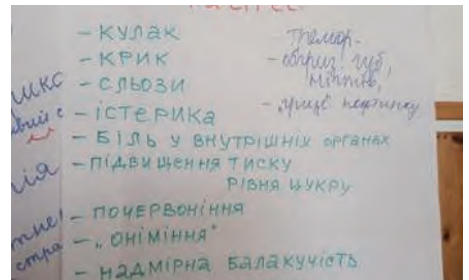 - КУЛАК
- КРИК
- СЛЬОЗИ
- ІСТЕРИКА
- БІЛЬ У ВНУТРІШНІХ ОРГАНАХ
- ПІДВИЩЕННЯ ТИСКУ
РІВНЯ ЦУКРУ
- ПОЧЕРВОНІННЯ
- „ОНІМІННЯ"
- НАДМІРНА БАЛАКУЧІСТЬ
Тремор -
- обгриз. губ,
нігтів,